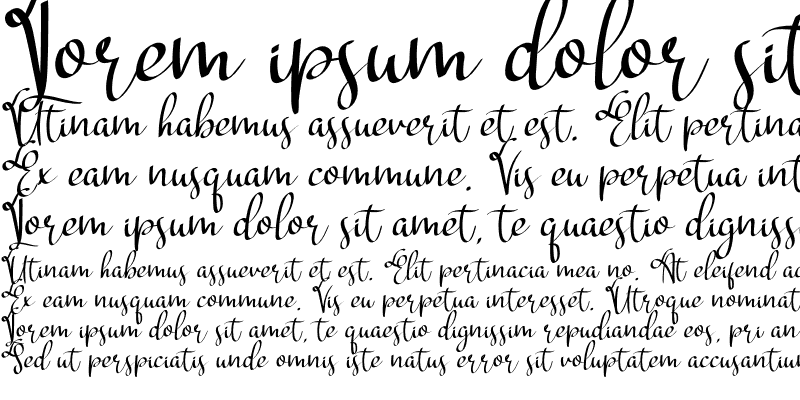 Lorem ipsum dolor sit
Utinam habemus assueverit et est. Elit pertina
Ex eam nusquam commune. Vis eu perpetua int
Lorem ipsum dolor sit amet, te quaestio digniss
Utinam habemus assueverit et est. Elit pertinacia mea no. At eleifend ac
Ex eam nusquam commune. Vis eu perpetua interesset. Utroque nominat
Lorem ipsum dolor sit amet, te quaestio dignissim repudiandae eos, pri an
Sed ut perspiciatis unde omnis iste natus error sit voluptatem accusantium